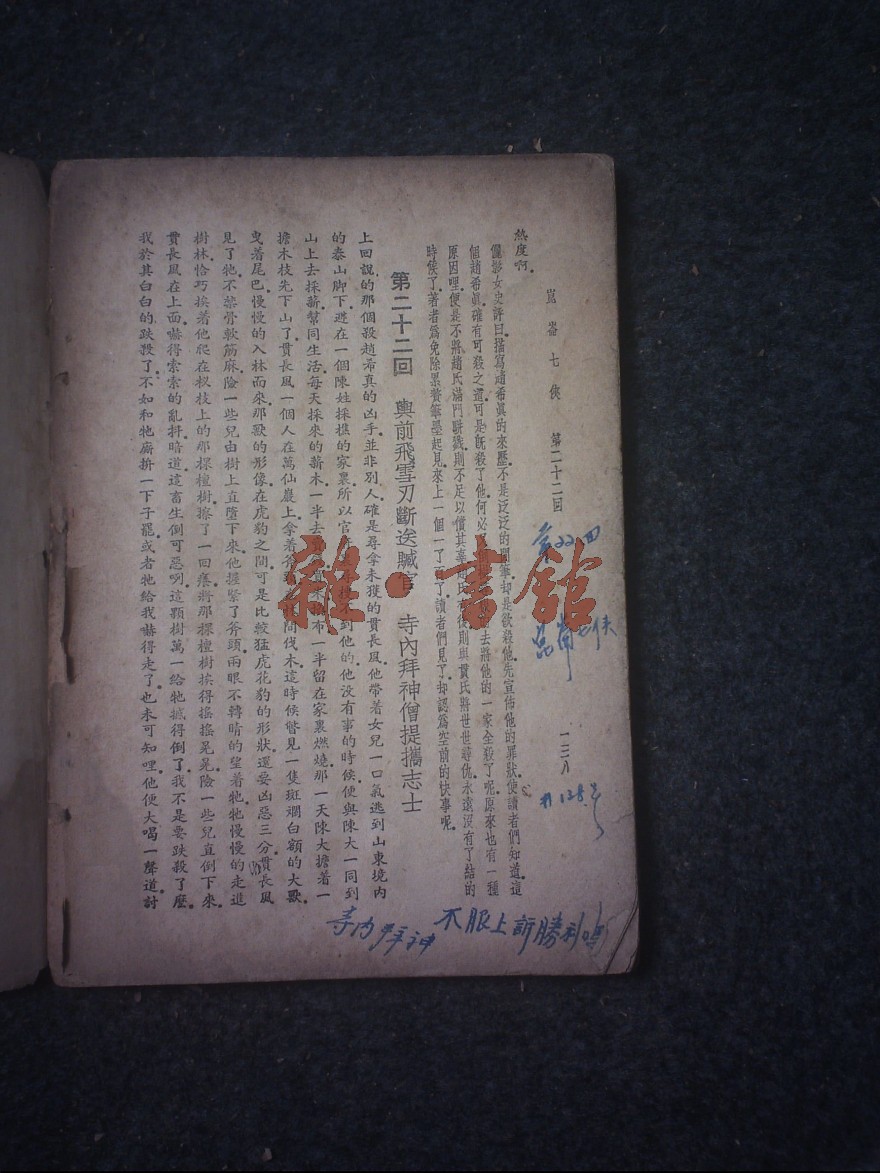 崑崙七俠　第二十二回　一三八
熱度啊
儷影女史評曰描寫趙希眞的來歷不是泛泛的閒筆却是欲殺他先宣佈他的罪狀使讀者們知道這
個趙希眞確有可殺之道可是旣殺了他何必去將他的一家全殺了呢原來也有一種
原因哩便是不將趙氏滿門斬戮則不足以償其辜趙氏有後則與貫氏將世世尋仇永遠沒有了結的
時候了著者爲免除累贅筆墨起見來上一個一了百了讀者們見了却認爲空前的快事呢
第二十二回　輿前飛雪刃斷送贓官　寺內拜神僧提攜志士
上回說的那個殺趙希真的凶手並非別人確是尋拿未獲的貫長風他帶着女兒一口氣逃到山東境內
的泰山脚下避在一個陳姓採樵的家裏所以官不到他的他沒有事的時候便與陳大一同到
山上去採薪幫同生活每天採來的薪木一半去賣買米布一半留在家裏燃燒那一天陳大擔着一
擔木枝先下山了貫長風一個人在萬仙巖上拿着斧頭林間伐木這時候瞥見一隻斑斕白額的大獸
曳着尾巴慢慢的入林而來那獸的形像在虎豹之間可是比較猛虎花豹的形狀還要凶惡三分貫長風
見了牠不禁骨軟筋麻險一些兒由樹上直墮下來他握緊了斧頭兩眼不轉睛的望着牠牠慢慢的走進
樹林恰巧挨着他爬在椏枝上的那棵檀樹擦了一回癢將那棵檀樹挨得搖搖晃晃險一些兒直倒下來
貫長風在上面嚇得索索的亂抖暗道這畜生倒可惡啊這顆樹萬一給牠撼得倒了我不是要跌殺了麽
我於其白白的跌殺了不如和牠廝拚一下子罷或者牠給我嚇得走了也未可知哩他便大喝一聲道討
22回
七俠
138
寺内拜神
不服上訴勝利嗎
雜·書館